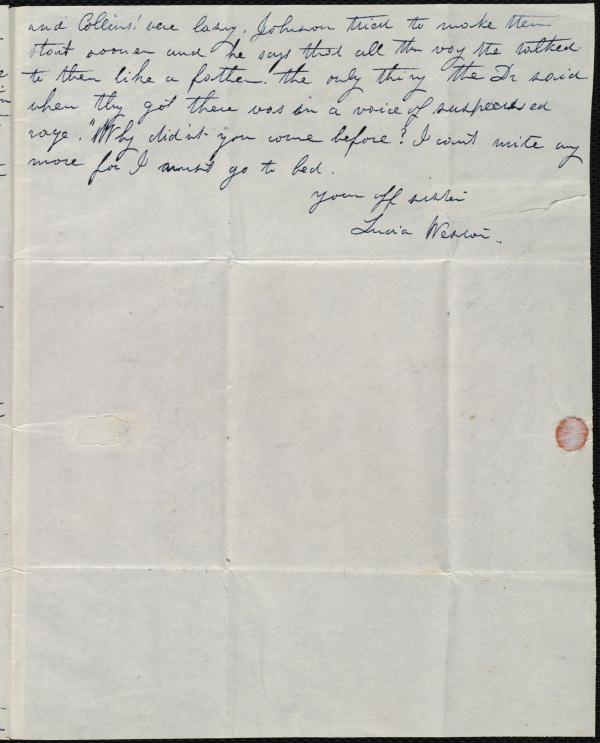 and Collins' were lazy. Johnson tried to make them
start sooner and he says that all the way he talked
to them like a father. The only thing the Dr said
when they got there was in a voice of suppressed
rage. "Why didn't you come before? I can't write any
more for I must go to bed.
your aff sister
Lucia Weston.